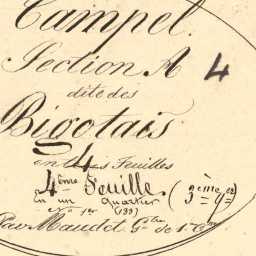 Campel.
Section A 4
dite des
Bigotais
en 4 Feuilles
4ème Feuille (3ème qer)
en un quartier
No 1er (199)
Par Maudet Gtre de 1re C